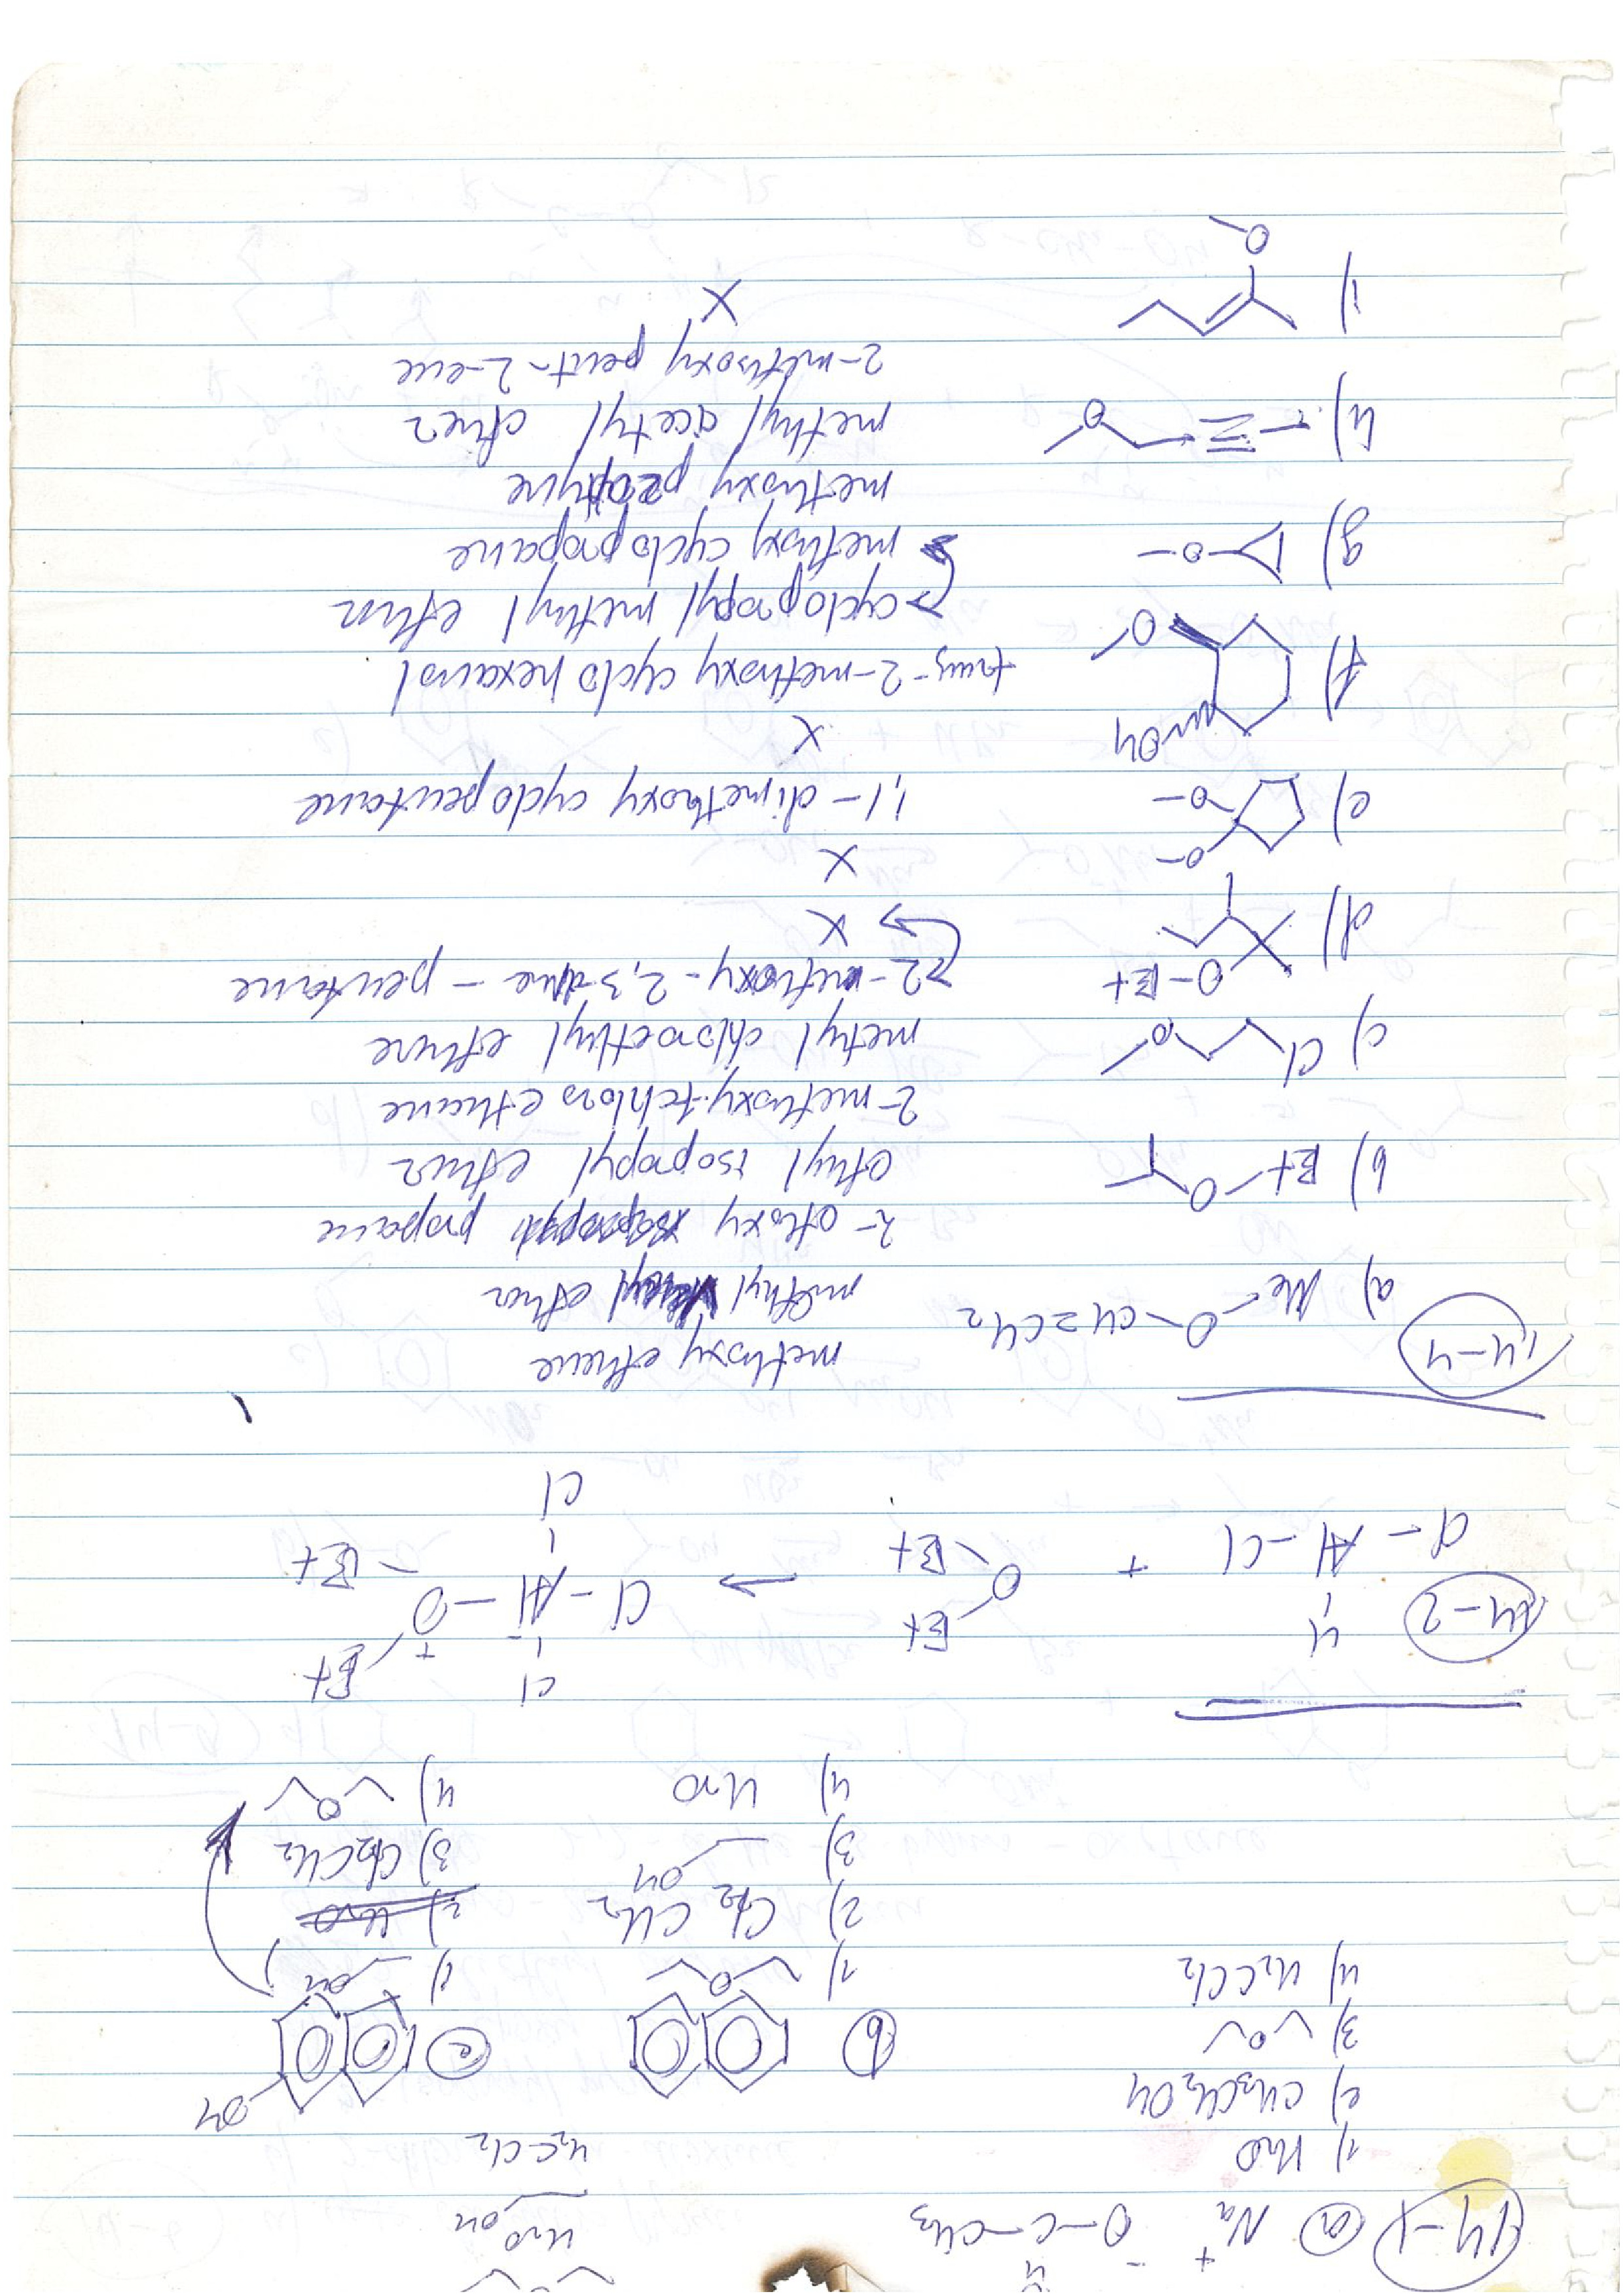 H2O OH
H2C-Cl2
14-1 a) Na+ -O-C-CH3
1) H2O
2) CH3CH2OH
3) O
4) H2CCl2
b)
1) O
2) Cl2CH2
3) OH
4) H2O
c) OH
1) OH
2) H2O
3) Cl2CH2
4) O
14-2
Cl - Al - Cl + Et O Et ⇌ Cl - Al - O+ Et Et
Cl Cl
14-4
a) Me-O-CH=CH2 methoxy ethene
methyl ether
b) Et-O 2-ethoxy propane
ethyl isopropyl ether
c) Cl O 2-methoxy-1chloro ethane
metyl chloroethyl ethere
d) O-Et 2-methoxy-2,3-dme-pentane
X
X
e) O- O- 1,1-dimethoxy cyclopentane
X
f) OH O trans-2-methoxy cyclo hexanol
g) -O- cyclopropyl methyl ether
methoxy cyclopropane
h) O methoxy
methyl acetyl ether
i) O 2-methoxy pent-2-ene
X